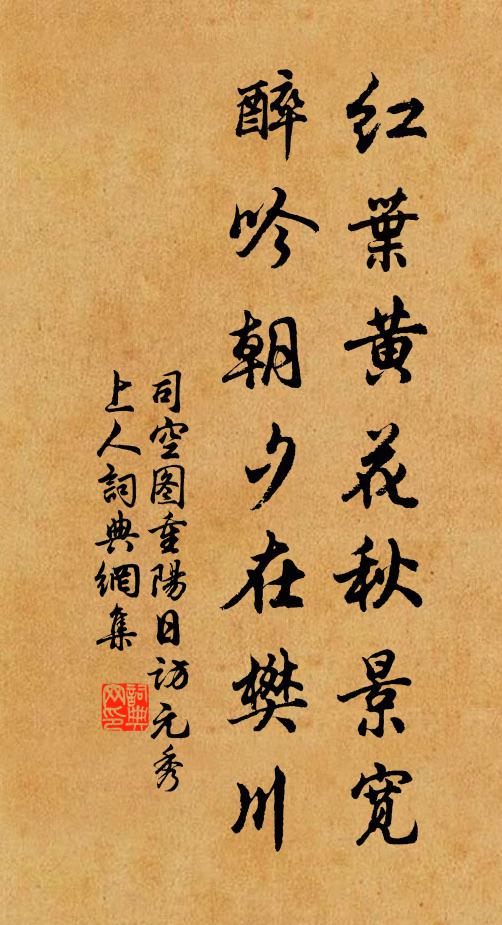 红葉黄花秋景寬
醉吟朝夕在樊川
司空图重陽日訪元秀
上人詞典網集
詞典网印